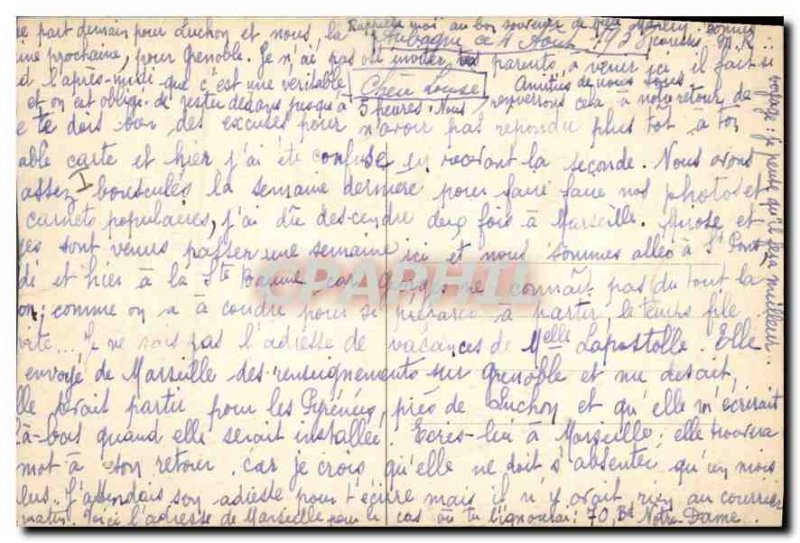 Rappelle moi au bon souvenir de
Aubagne ce 4 Août 1938
Chère Louise
te dois bien des excuses pour n'avoir pas répondu plus tôt à ton
able carte et hier j'ai été confuse en recevant la seconde. Nous avons
assez bousculés la semaine dernière pour faire faire nos photos et
carnets populaires, j'ai dû descendre deux fois à Marseille. et
ges sont venus passer une semaine ici et nous sommes allés à St Pons
di et hier à la Ste Baume car Georges ne connaît pas du tout la
on; comme on a à coudre pour se préparer à partir le temps file
vite... Je ne sais pas l'adresse de vacances de Melle Lapostolle. Elle
envoyé de Marseille des renseignements sur Grenoble et me disait,
lle avait partir pour les Pyrénées, près de Luchon et qu'elle m'écrirait
là-bas quand elle serait installée. Ecris-lui à Marseille; elle trouvera
mot à son retour, car je crois qu'elle ne doit s'absenter qu'un mois
lus. J'attendais son adresse pour t'écrire mais il n'y avait rien au courrier
matin. Voici l'adresse de Marseille pour le cas où tu l'ignorerais: 70, Bd Notre-Dame.
e part demain pour Luchon et nous, la
ine prochaine, pour Grenoble. Je n'ai pas inviter vos parents à venir ici il fait si
et l'après-midi que c'est une véritable
et on est obligé de rester dedans jusqu'à 5 heures. Nous renverrons cela à notre retour de
voyage; je pense qu'il fera meilleur.
Amitiés de nous tous
CPARPHIL